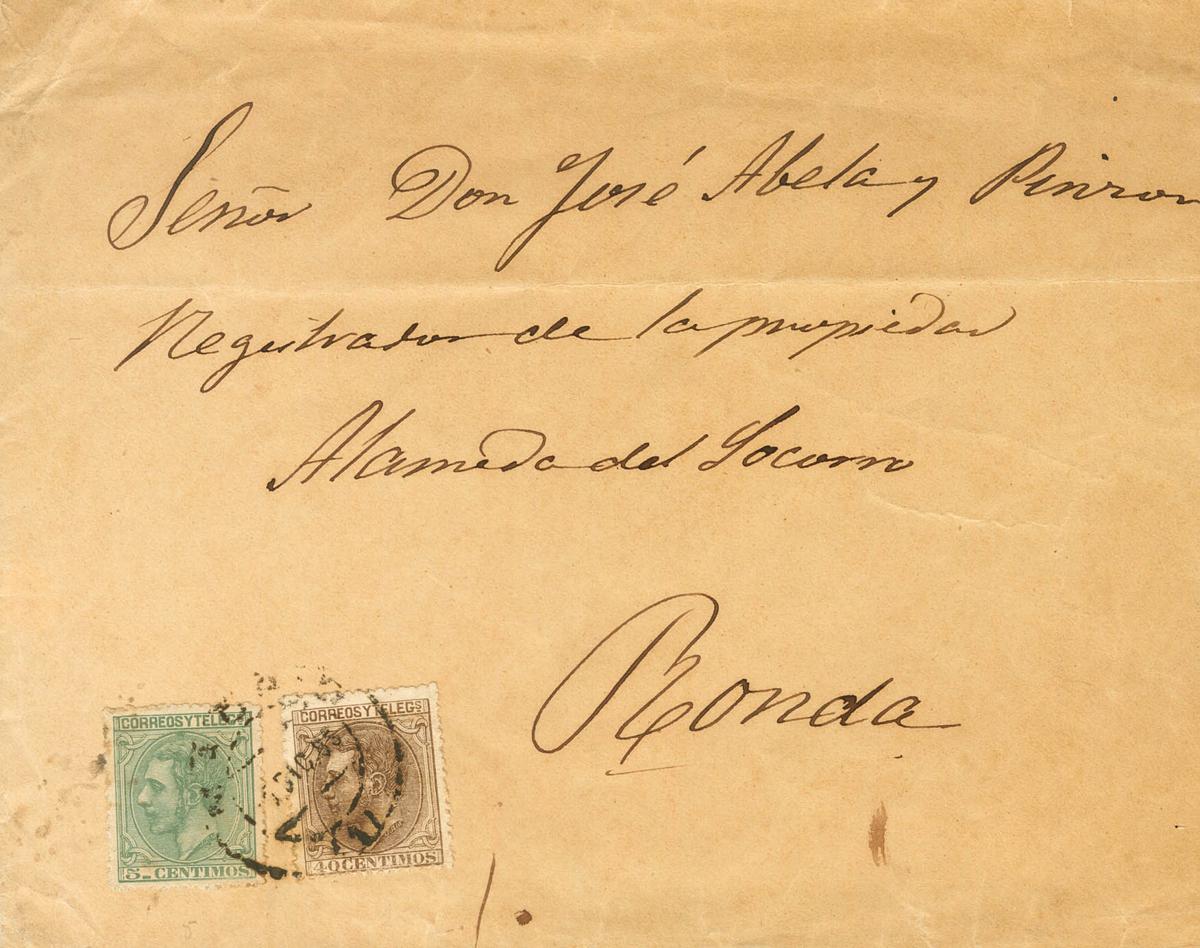 Señor Don José Abela y Pinzon
Registrador de la propiedad
Alameda del Socorro
Ronda
CORREOS Y TELEG
CORREOS Y TELEGS
DIC 85
5- CENTIMOS
40 CENTIMOS